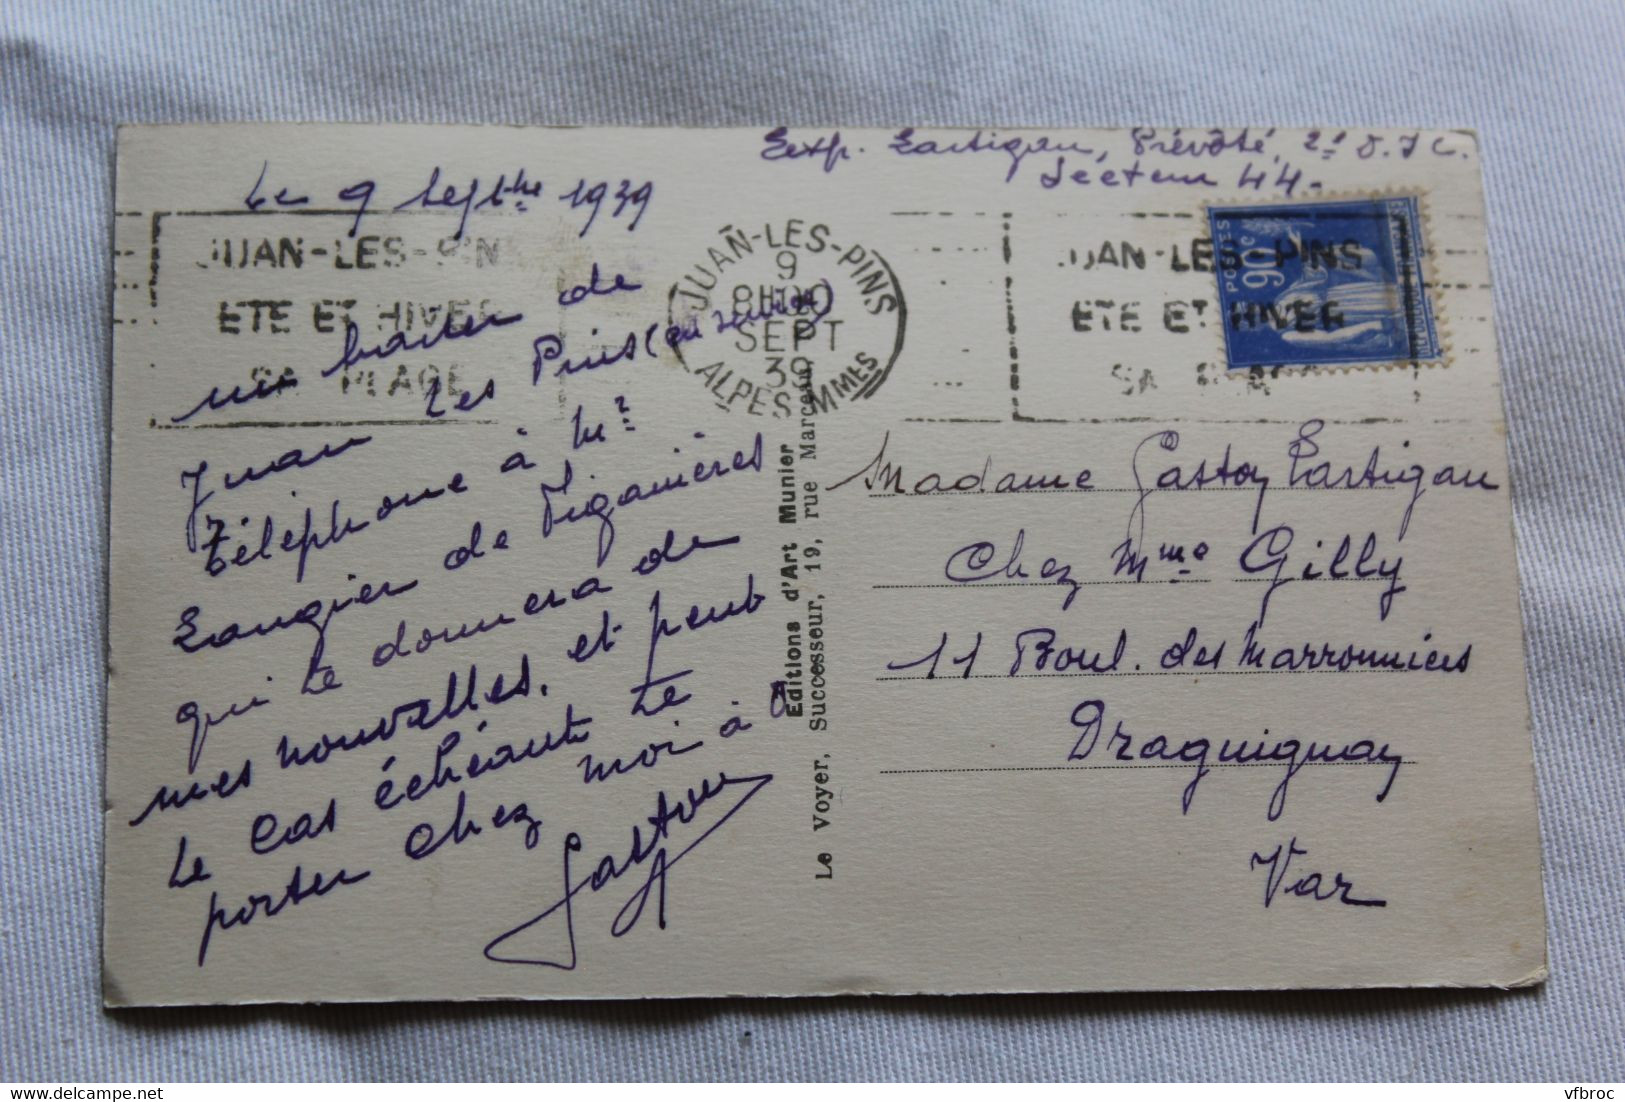 Exp. Lartigau, Prévôté, 2e D.I.C.
Secteur 44-
Le 9 Septbre 1939
un trait de
Juan Les Pins (en service)
téléphone à Mr
Laugier de Viganières
qui te donnera de
mes nouvelles, et peut
le cas échéant te
porter chez moi à
Gaston
JUAN-LES-PINS
ETE ET HIVER
SA PLAGE
JUAN-LES-PINS
9
SEPT
39
ALPES MMES
JUAN-LES-PINS
ETE ET HIVER
SA PLAGE
POSTES
90c
Editions d'Art Munier
Le Voyer, Successeur, 19, rue Marceau
Madame Gaston Lartigau
Chez Mme Gilly
11 Boul. des Marronniers
Draguignan
Var
vfbroc